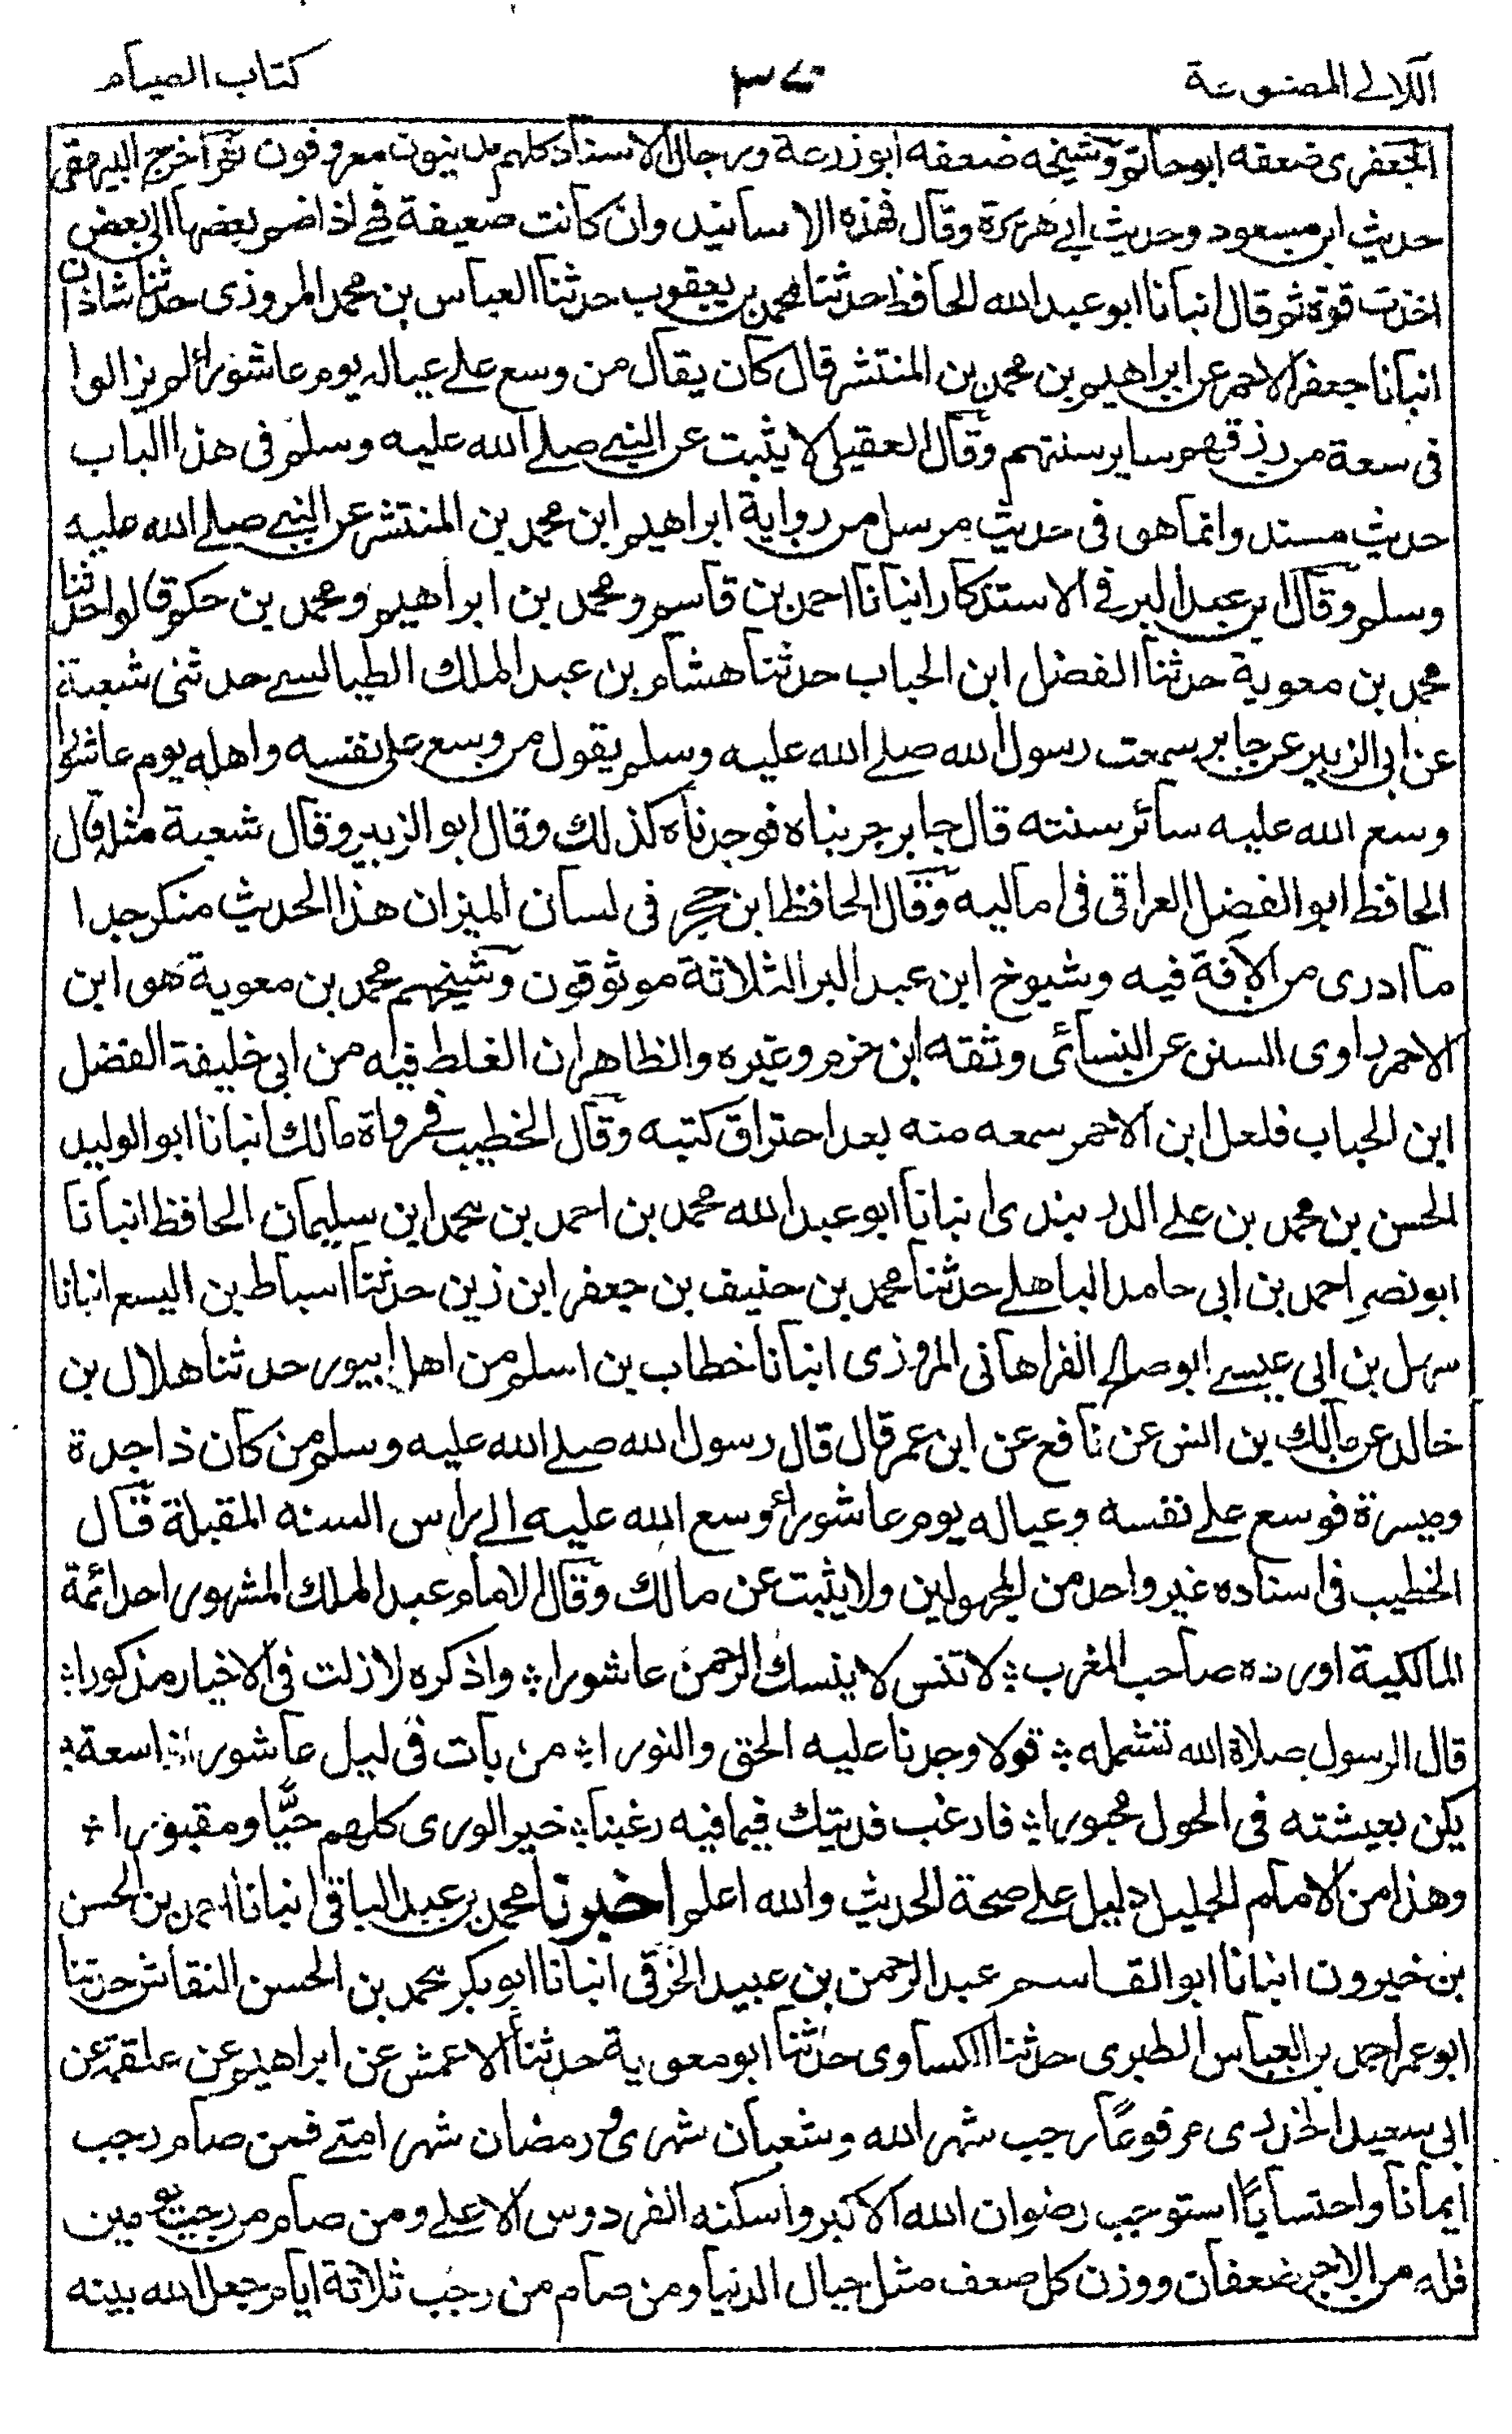 اللآلي المصنوعة
كتاب الصيام
الجعفرى ضعفه ابو حاتم وشيخه ضعفه ابو زرعة ورجال الاسناد كلهم مدنيون معروفون ثم اخرج البيهقى
حديث ابن مسعود وحديث ابي هريرة وقال فهذه الاسانيد وان كانت ضعيفة فهي اذا ضم بعضها الى بعض
اخذت قوة ثم قال انبانا ابو عبد الله الحافظ حدثنا محمد بن يعقوب حدثنا العباس بن محمد المروزى حدثنا شاذان
انبانا جعفر الاحمر عن ابراهيم بن محمد بن المنتشر قال كان يقال من وسع على عياله يوم عاشوراء لم يزالوا
فى سعة من رزقهم ساير سنتهم وقال العقيلى لا يثبت عن النبي صلے الله عليه وسلم فى هذا الباب
حديث مسند وانما هو فى حديث مرسل من رواية ابراهيم ابن محمد بن المنتشر عن النبي صلے الله عليه
وسلم وقال ابن عبد البر في الاستذكار انبانا احمد بن قاسم ومحمد بن ابراهيم ومحمد بن حكم قالوا حدثنا
محمد بن معوية حدثنا الفضل ابن الحباب حدثنا هشام بن عبد الملك الطيالسے حدثنى شعبة
عن ابى الزبير عن جابر سمعت رسول الله صلے الله عليه وسلم يقول من وسع على نفسه واهله يوم عاشورا
وسع الله عليه سائر سنته قال جابر جربناه فوجدناه كذلك وقال ابو الزبير وقال شعبة مثله قال
الحافظ ابو الفضل العراقى فى اماليه وقال الحافظ ابن حجر فى لسان الميزان هذا الحديث منكر جدا
ما ادرى من الافة فيه وشيوخ ابن عبد البر الثلاثة موثوقون وشيخهم محمد بن معوية هو ابن
الاحمر راوى السنن عن النسائى وثقه ابن حزم وغيره والظاهر ان الغلط فيه من ابى خليفة الفضل
ابن الحباب فلعل ابن الاحمر سمعه منه بعد احتراق كتبه وقال الخطيب في رواة مالك انبانا ابو الوليد
الحسن بن محمد بن على الدربندى انبانا ابو عبد الله محمد بن احمد بن محمد ابن سليمان الحافظ انبانا
ابو نصر احمد بن ابى حامد الباهلے حدثنا محمد بن حنيف بن جعفر ابن زين حدثنا اسباط بن اليسع انبانا
سهل بن ابى عيسے ابو صالح الفراهانى المروزى انبانا خطاب بن اسلم من اهل ابيور حدثنا هلال بن
خالد عن مالك بن انس عن نافع عن ابن عمر قال قال رسول الله صلے الله عليه وسلم من كان ذا جدة
وميسرة فوسع على نفسه وعياله يوم عاشوراء وسع الله عليه الى راس السنه المقبلة قال
الخطيب فى اسناده غير واحد من المجهولين ولا يثبت عن مالك وقال الامام عبد الملك المشهور احد ائمة
المالكية اورده صاحب المغرب ؞ لا تنس لا ينسك الرحمن عاشورا ؞ واذكره لا زلت فى الاخيار مذكورا ؞
قال الرسول صلاة الله تشمله ؞ قولا وجدنا عليه الحق والنورا ؞ من بات فى ليل عاشورا ؞ ذا سعة ؞
يكن بعيشته فى الحول محبورا ؞ فارغب فديتك فيما فيه رغبنا ؞ خير الورى كلهم حيًّا ومقبورا ؞
وهذا من الامام الجليل دليل على صحة الحديث والله اعلم اخبرنا محمد بن عبد الباقى انبانا احمد بن الحسن
بن خيرون انبانا ابو القاسم عبد الرحمن بن عبيد الخرقى انبانا ابو بكر محمد بن الحسن النقاش حدثنا
ابو عمر احمد بن العباس الطبرى حدثنا الكساوى حدثنا ابو معوية حدثنا الاعمش عن ابراهيم عن علقمة عن
ابى سعيد الخدرى مرفوعًا رجب شهر الله وشعبان شهرى ورمضان شهر امتے فمن صام رجب
ايمانا واحتسابًا استوجب رضوان الله الاكبر واسكنه الفردوس الاعلے ومن صام من رجب يومين
فله من الاجر ضعفان ووزن كل ضعف مثل جبال الدنيا ومن صام من رجب ثلاثة ايام جعل الله بينه